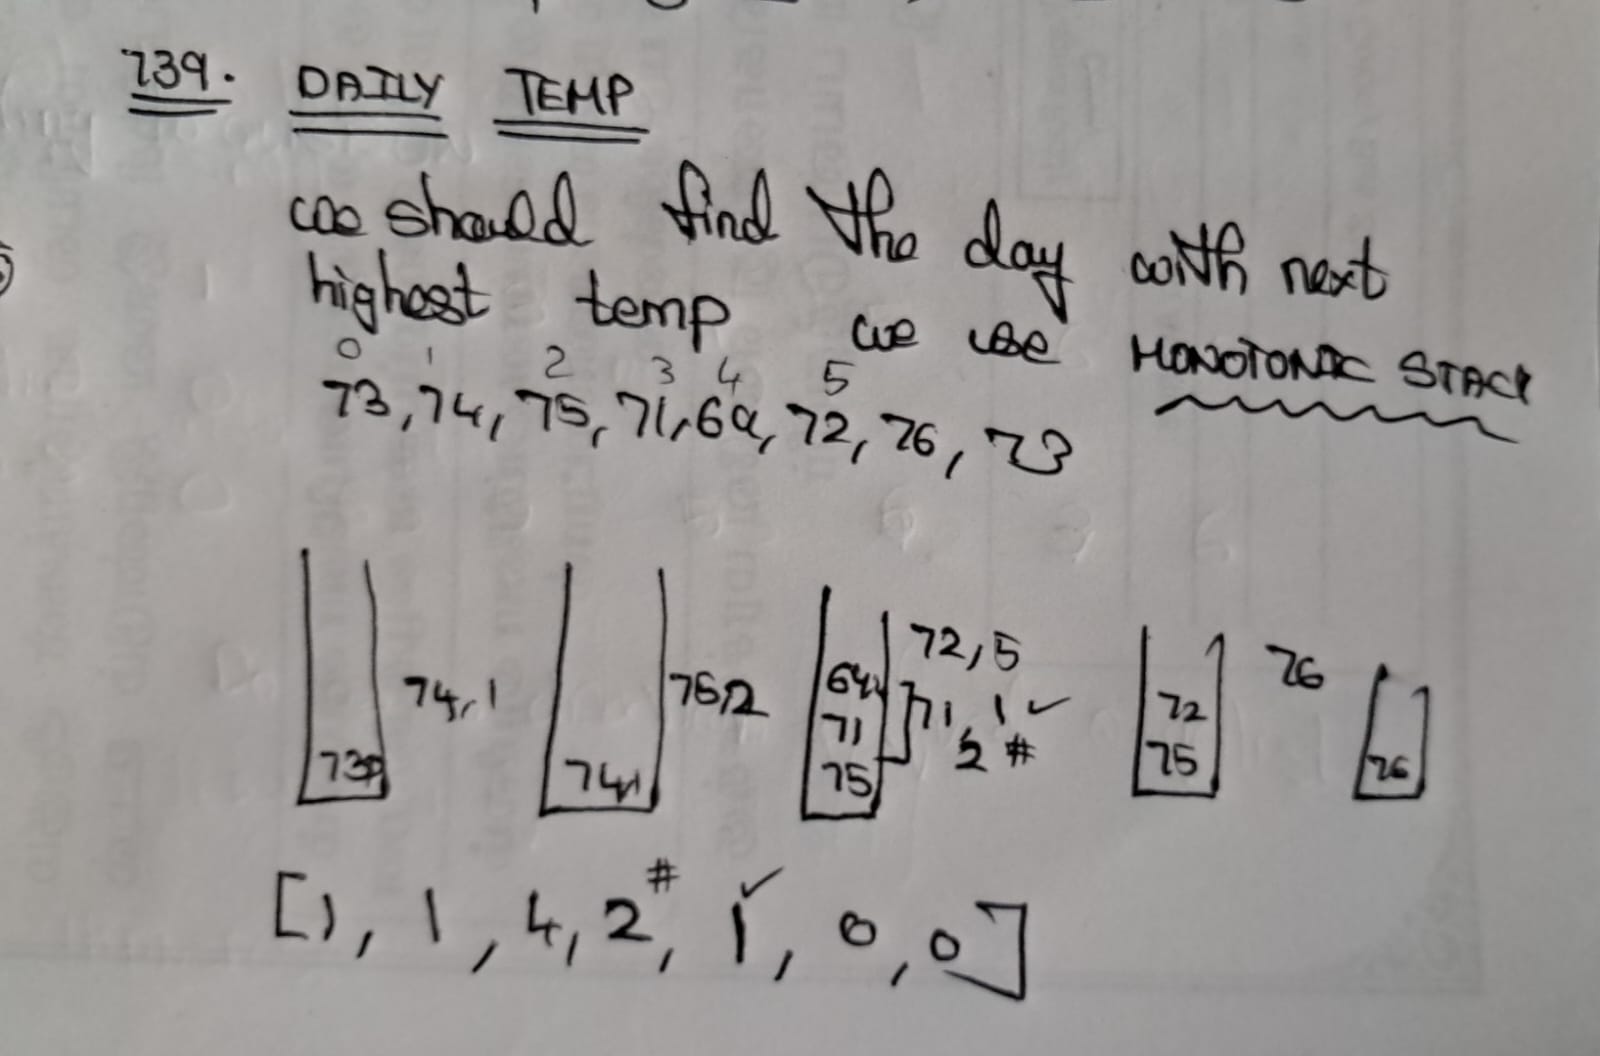 739. DAILY TEMP
we should find the day with next
highest temp we use MONOTONIC STACK
0 1 2 3 4 5
73, 74, 75, 71, 69, 72, 76, 73
72, 5
74, 1 75, 2 69 71, 1 ✓ 72 76
71 2 #
73 0 74 1 75 75 76
# ✓
[1, 1, 4, 2, 1, 0, 0]